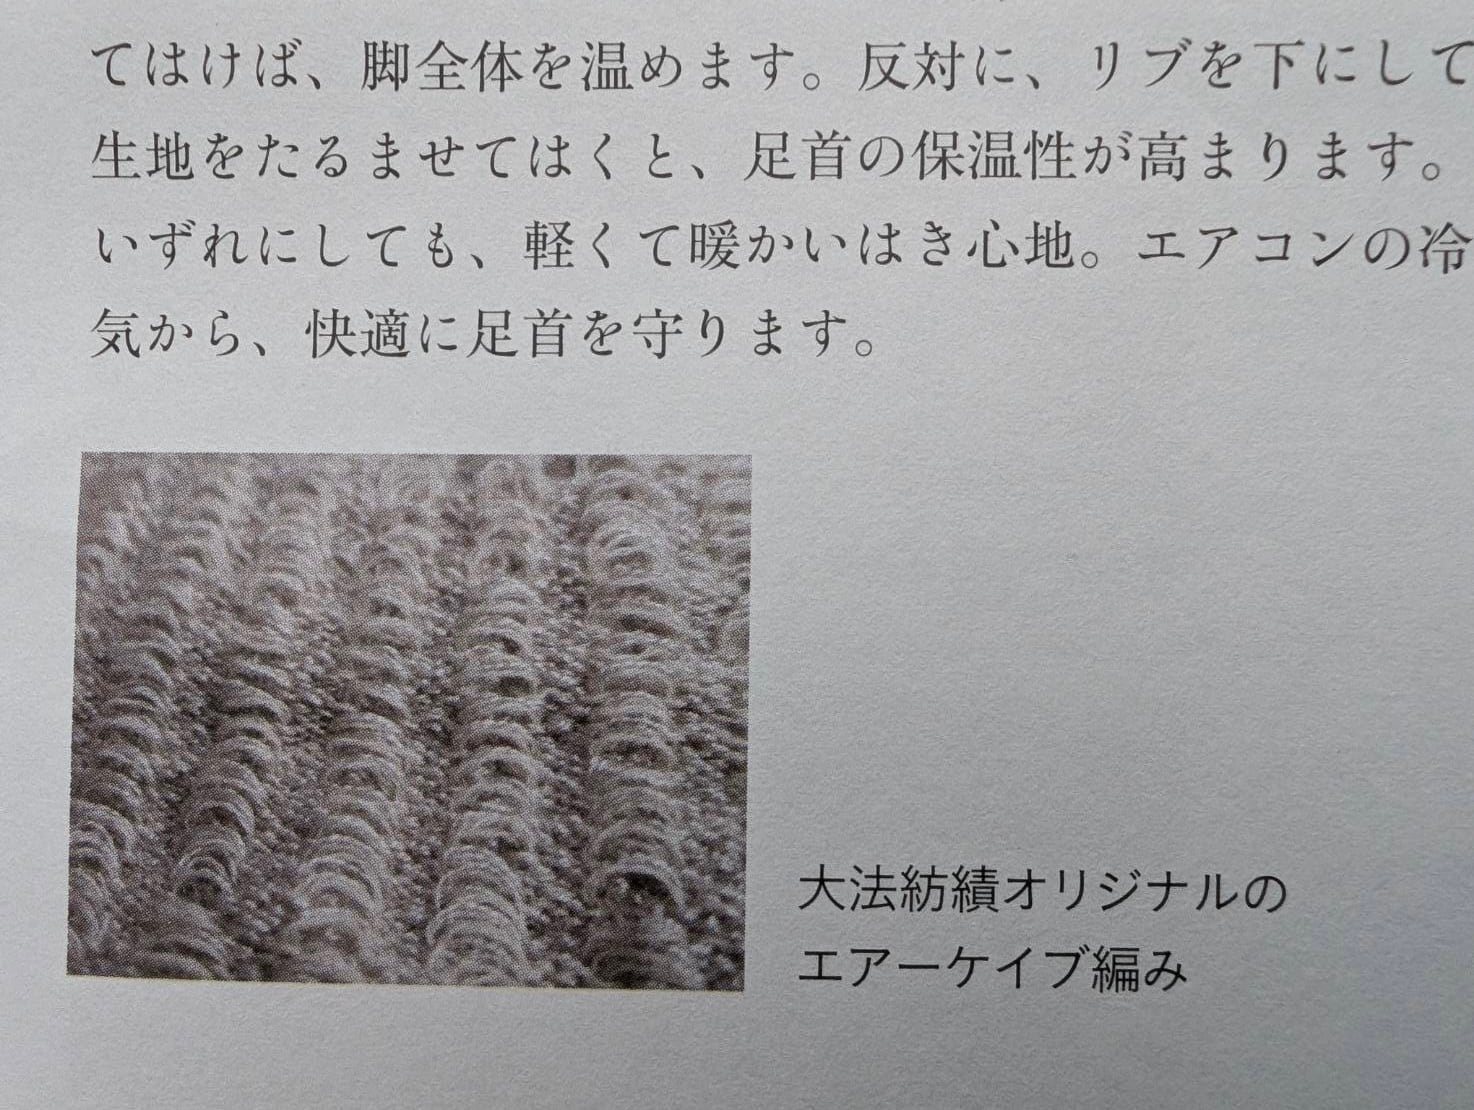 てはけば、脚全体を温めます。反対に、リブを下にして
生地をたるませてはくと、足首の保温性が高まります。
いずれにしても、軽くて暖かいはき心地。エアコンの冷
気から、快適に足首を守ります。
大法紡績オリジナルの
エアーケイブ編み